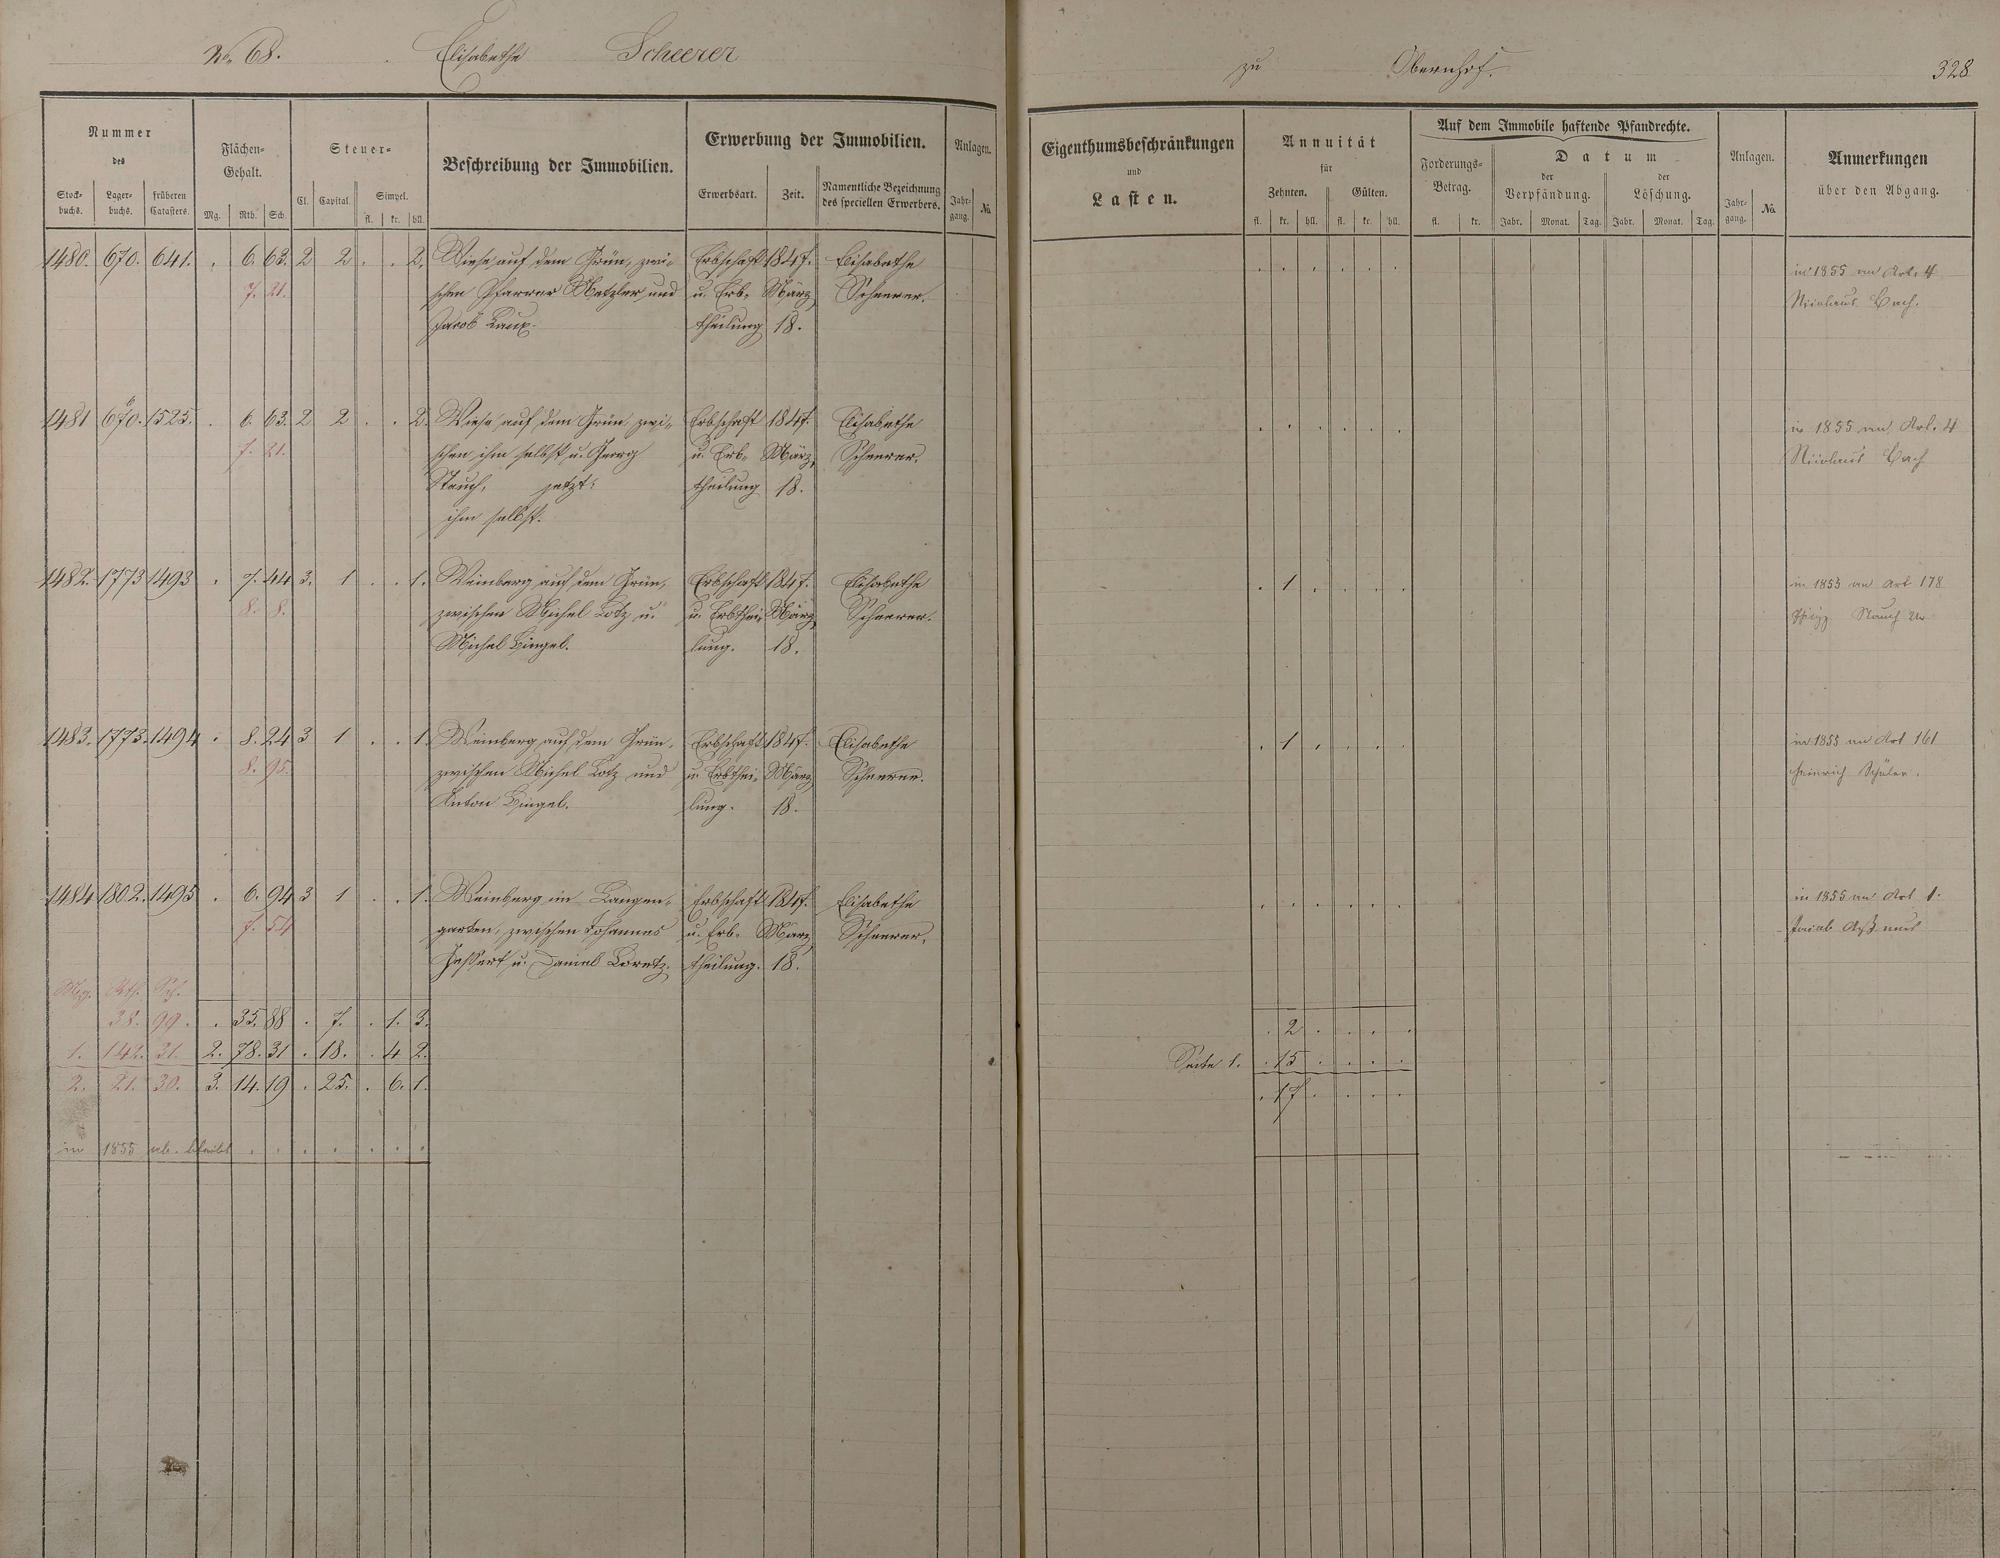 No 68. Elisabethe Scheerer zu Obernhof. 328
Nummer des
Stock-buchs. Lager-buchs. früheren Catasters.
Flächen-Gehalt.
Mg. Rth. Sch.
Steuer-
Cl. Capital. Simpel.
fl. kr. hll.
Beschreibung der Immobilien.
Erwerbung der Immobilien.
Erwerbsart. Zeit. Namentliche Bezeichnung des speciellen Erwerbers.
Anlagen.
Jahr-gang. No.
Eigenthumsbeschränkungen
und
Lasten.
Annuität
für
Zehnten. Gülten.
fl. kr. hll. fl. kr. hll.
Auf dem Immobile haftende Pfandrechte.
Forderungs-Betrag.
fl. kr.
Datum
der Verpfändung. der Löschung.
Jahr. Monat. Tag. Jahr. Monat. Tag.
Anlagen.
Jahr-gang. No.
Anmerkungen
über den Abgang.
1480. 670. 641. . 6. 63. 2 2 . . 2. Wiese auf dem Grün, zwi- Erbschaft 1847. Elisabethe . . . . . . in 1855 an Art. 4
7. 21. schen Pfarrer Metzler und u. Erb- März Scheerer. Bach.
Jacob Laux. theilung 18.
1481 670. 1525. . 6. 63. 2 2 . . 2. Wiese auf dem Grün, zwi- Erbschaft 1847. Elisabethe . . . . . . in 1855 an Art. 4
7. 21. schen ihm selbst u. Georg u. Erb- März Scheerer. Bach
Stauch, jetzt: theilung 18.
ihm selbst.
1482. 1773 1493 . 7. 44 3. 1 . . 1. Weinberg auf dem Grün, Erbschaft 1847. Elisabethe . 1 . . . . in 1853 an Art 178
8. 8. zwischen Michel Lotz u. u. Erbthei- März Scheerer. Stauch
Michel Bingel. lung. 18.
1483. 1773. 1494 . 8. 24 3 1 . . 1. Weinberg auf dem Grün, Erbschaft 1847. Elisabethe . 1 . . . . in 1855 an Art 161
8. 95. zwischen Michel Lotz und u. Erbthei- März Scheerer. Heinrich Schüler.
Anton Bingel. lung. 18.
1484 1802. 1495 . 6. 94 3 1 . . 1. Weinberg im Langen- Erbschaft 1847. Elisabethe . . . . . . in 1855 an Art 1.
7. 54 garten, zwischen Johannes u. Erb- März Scheerer. Jacob
u. Daniel Loretz. theilung. 18.
Mg. Rth. Sch.
38. 99. . 35. 88 . 7. . 1. 3. . 2 . . . .
1. 142. 31. 2. 78. 31 . 18. . 4 2. Seite 1. . 15 . . . .
2. 21. 30. 3. 14. 19 . 25. . 6. 1. . 17 . . . .
in 1855